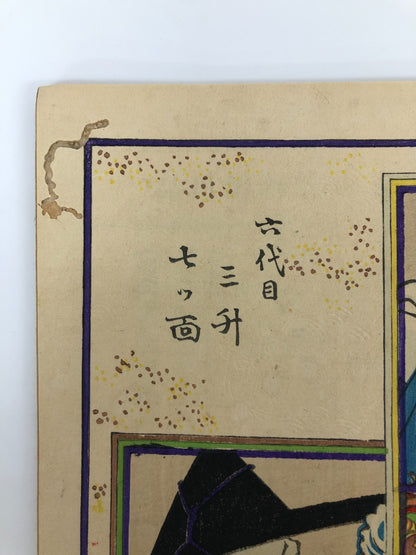 六代目
三升
七ツ面